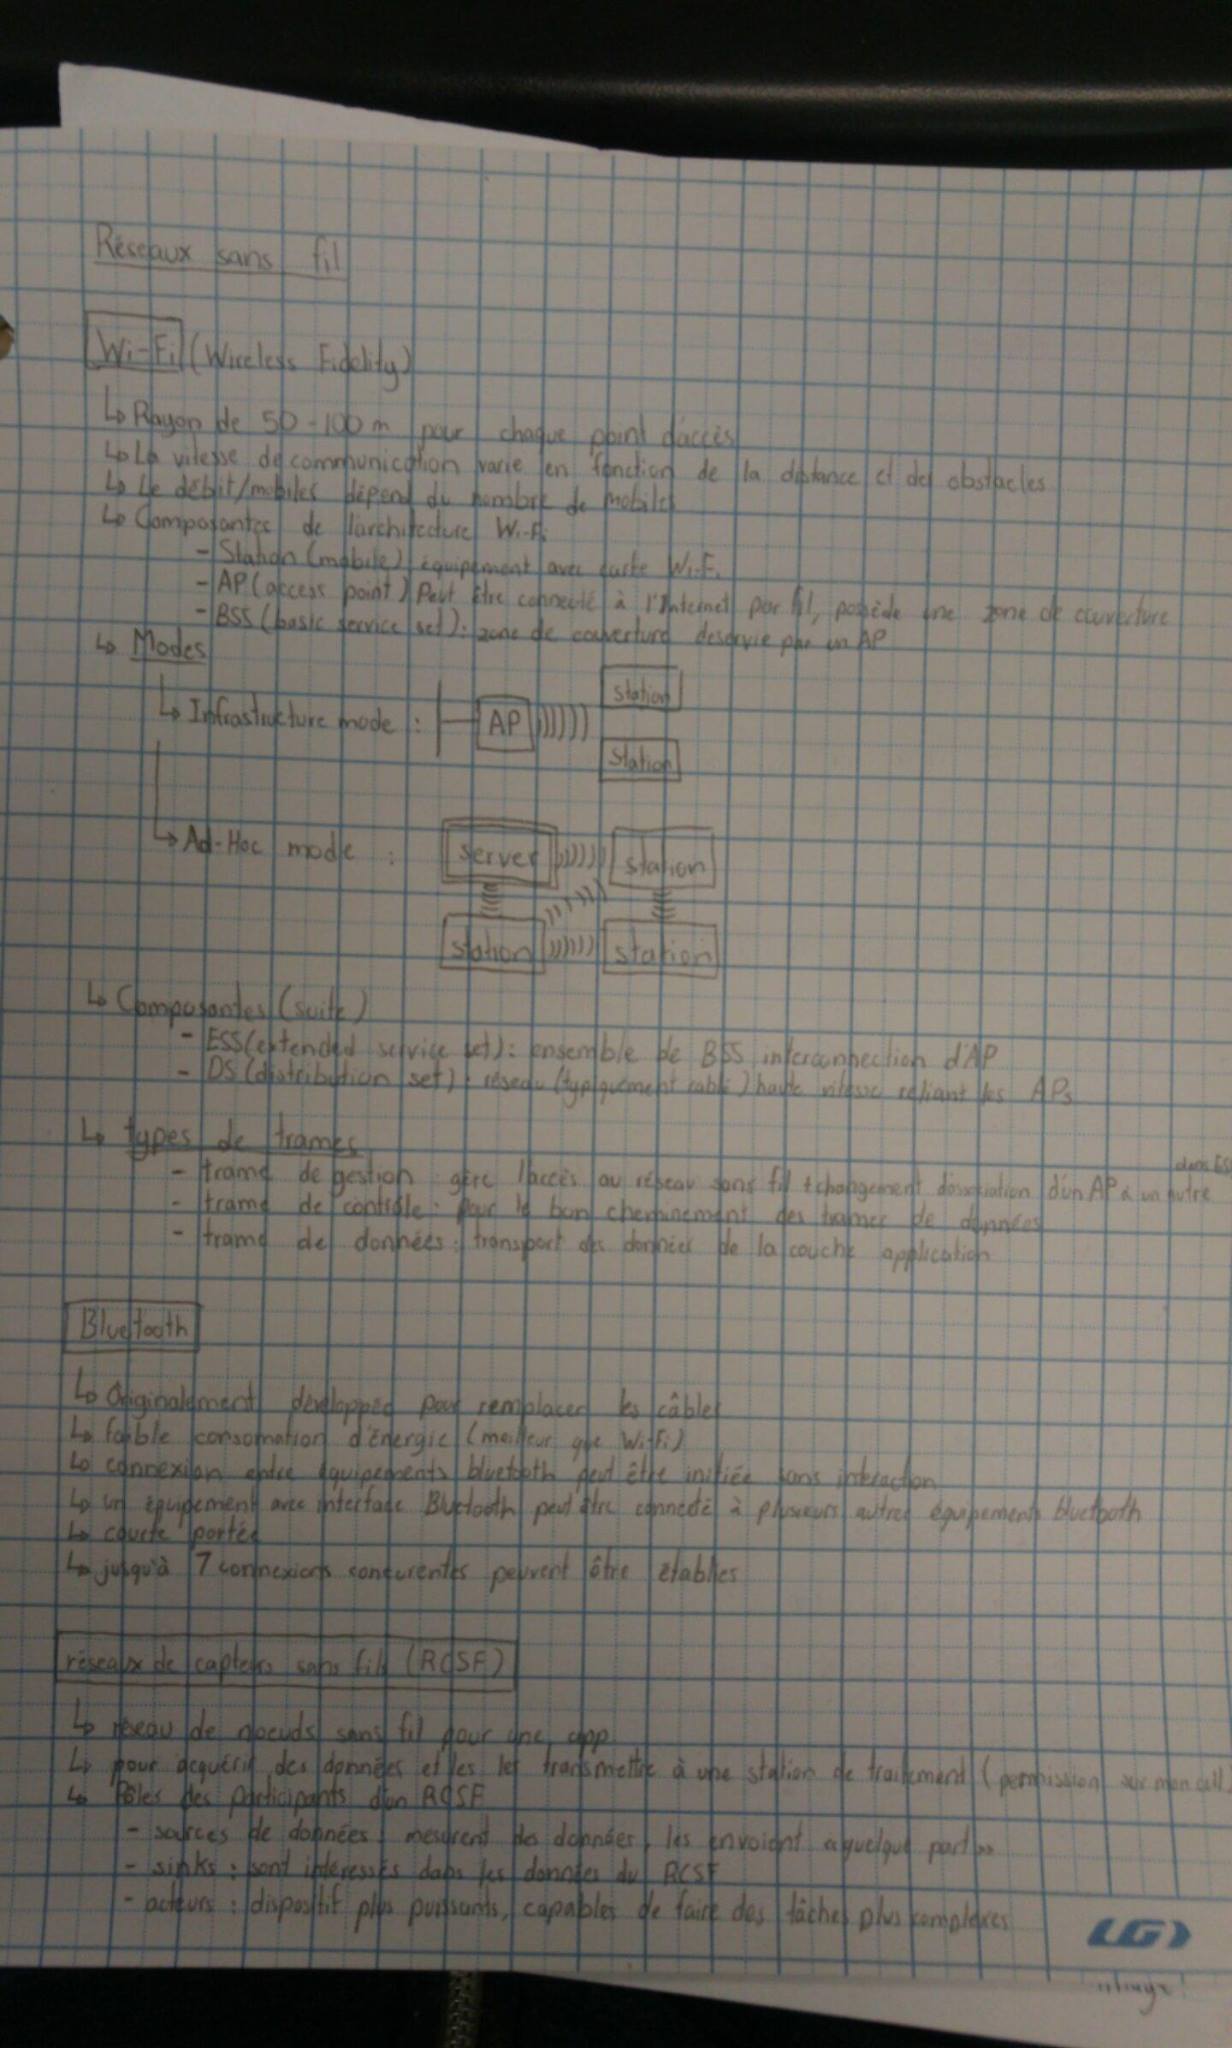 Réseaux sans fil
Wi-Fi (Wireless Fidelity)
↳ Rayon de 50-100 m pour chaque point d'accès
↳ La vitesse de communication varie en fonction de la distance et des obstacles
↳ Le débit/mobiles dépend du nombre de mobiles
↳ Composantes de l'architecture Wi-Fi
- Station (mobile) équipement avec carte Wi-Fi
- AP (access point) Peut être connecté à l'Internet par fil, possède une zone de couverture
- BSS (basic service set) : zone de couverture desservie par un AP
↳ Modes
↳ Infrastructure mode : AP station
station
↳ Ad-Hoc mode : server station
station station
↳ Composantes (suite)
- ESS (extended service set) : ensemble de BSS interconnection d'AP
- DS (distribution set) : réseau (typiquement cablé) haute vitesse reliant les APs
↳ types de trames
- trame de gestion : gère l'accès au réseau sans fil + changement d'association d'un AP à un autre dans
- trame de contrôle : pour le bon cheminement des trames de données
- trame de données : transport des données de la couche application
Bluetooth
↳ Originalement développée pour remplacer les câbles
↳ faible consomation d'énergie (meilleur que Wi-Fi)
↳ connexion entre équipements bluetooth peut être initiée sans interaction
↳ un équipement avec interface Bluetooth peut être connecté à plusieurs autres équipements bluetooth
↳ courte portée
↳ jusqu'à 7 connexions concurentes peuvent être établies
réseaux de capteurs sans fils (RCSF)
↳ réseau de noeuds sans fil pour une app
↳ pour acquérir des données et les les transmettre à une station de traitement (permission sur mon cell)
↳ Rôles des participants d'un RCSF
- sources de données : mesurent des données, les envoient "quelque part"
- sinks : sont intéressés dans les données du RCSF
- acteurs : dispositif plus puissants, capables de faire des tâches plus complexes